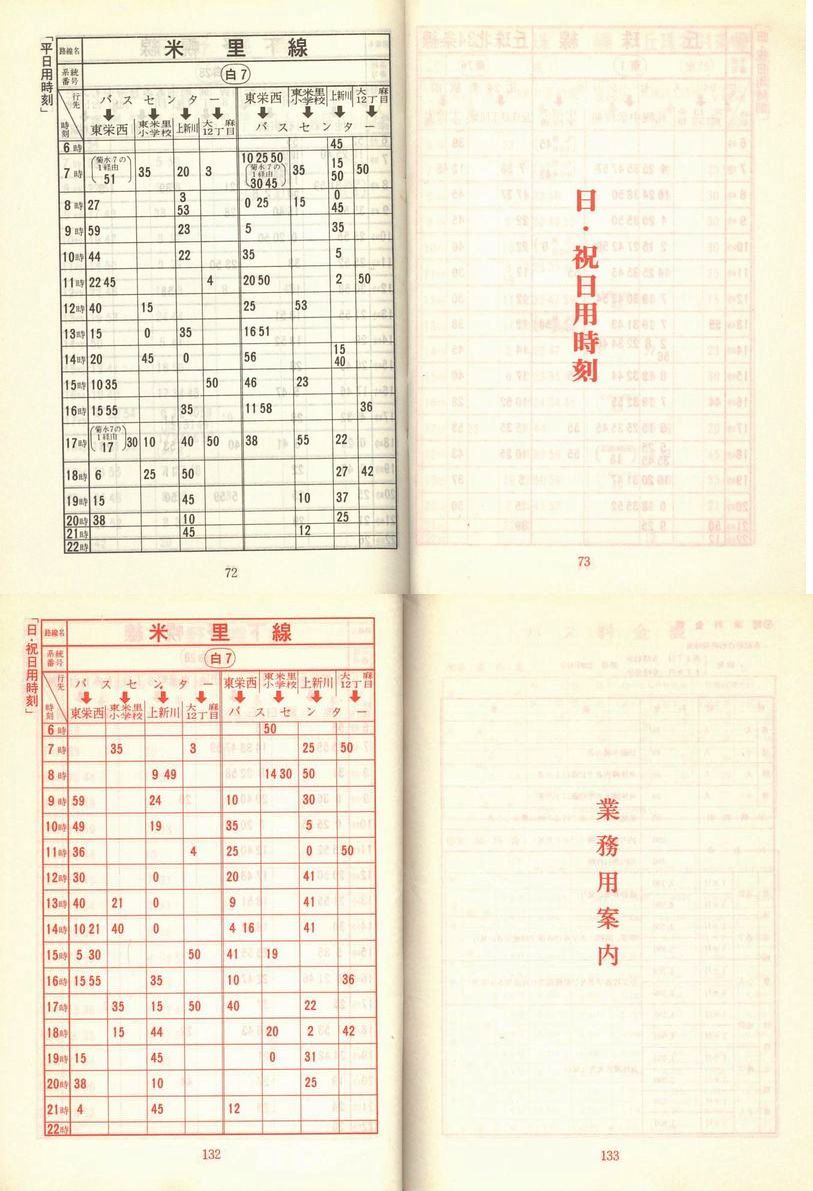 「平日用時刻」
路線名 米里線
系統番号 白7
行先 バスセンター 東栄西 東米里小学校 上新川 大麻12丁目
時刻 東栄西 東米里小学校 上新川 大麻12丁目 バスセンター
6時 45
7時 (菊水7の1経由 51) 35 20 3 10 25 50 (菊水7の1経由 30 45) 35 15 50 50
8時 27 3 53 0 25 15 0 45
9時 59 23 5 35
10時 44 22 35 5
11時 22 45 4 20 50 2 50
12時 40 15 25 53
13時 15 0 35 16 51
14時 20 45 0 56 15 40
15時 10 35 50 46 23
16時 15 55 35 11 58 36
17時 (菊水7の1経由 17) 30 10 40 50 38 55 22
18時 6 25 50 27 42
19時 15 45 10 37
20時 38 10 25
21時 45 12
22時
72
日・祝日用時刻
73
「日・祝日用時刻」
路線名 米里線
系統番号 白7
行先 バスセンター 東栄西 東米里小学校 上新川 大麻12丁目
時刻 東栄西 東米里小学校 上新川 大麻12丁目 バスセンター
6時 50
7時 35 3 25 50
8時 9 49 14 30 50
9時 59 24 10 30
10時 49 19 35 5
11時 36 4 25 0 50
12時 30 0 20 41
13時 40 21 0 9 41
14時 10 21 40 0 4 16 41
15時 5 30 50 41 19
16時 15 55 35 10 36
17時 35 15 50 40 22
18時 15 44 20 2 42
19時 15 45 0 31
20時 38 10 25
21時 4 45 12
22時
132
業務用案内
133